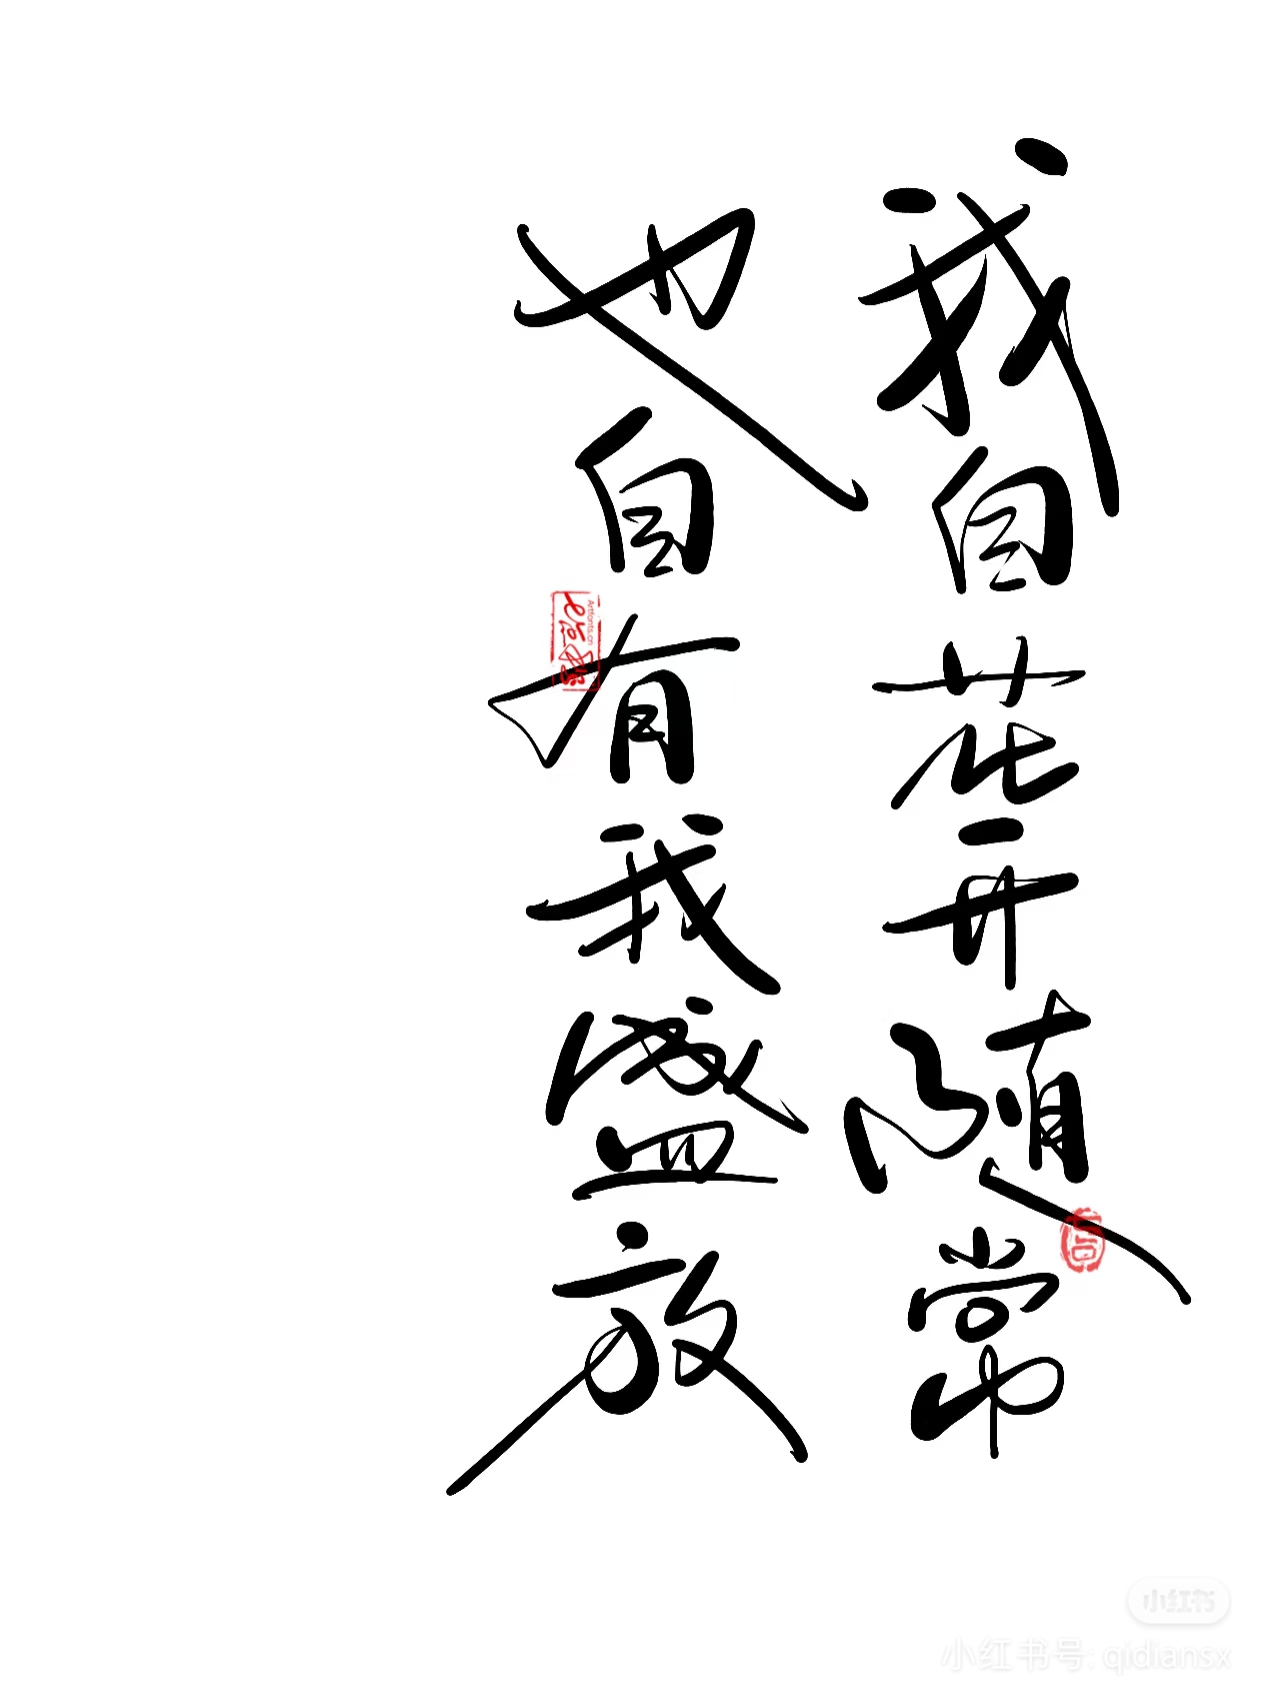 我自花开随常
也自有我盛放
Artfonts.cn
小红书
小红书号: qidiansx